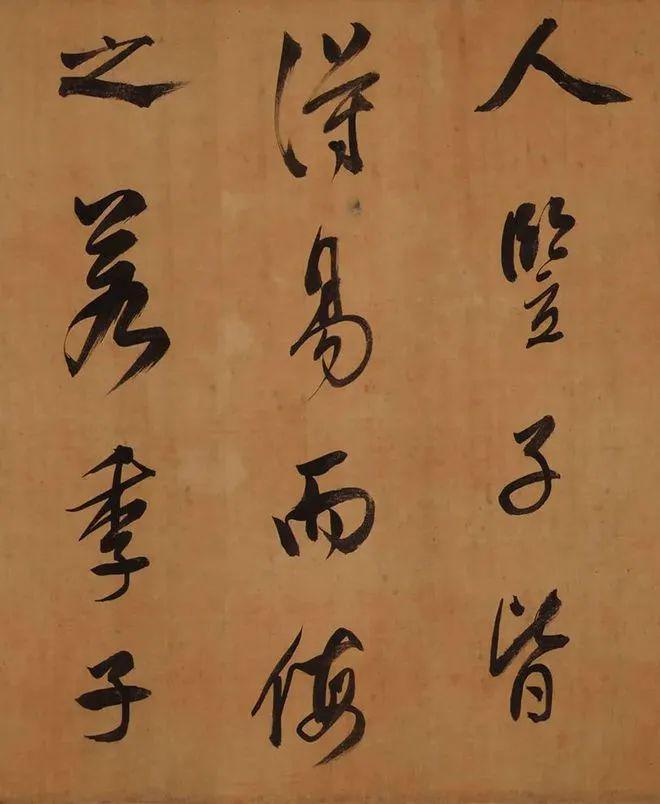 人豎子皆
得易而侮
之若季子